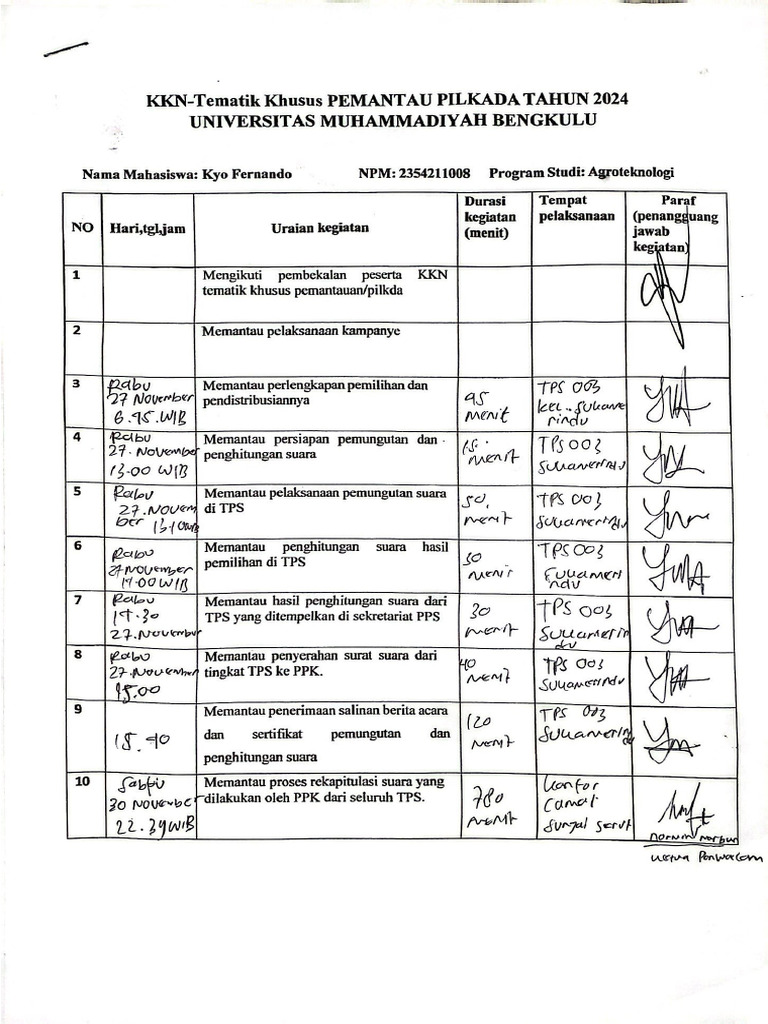 KKN-Tematik Khusus PEMANTAU PILKADA TAHUN 2024
UNIVERSITAS MUHAMMADIYAH BENGKULU
Nama Mahasiswa: Kyo Fernando NPM: 2354211008 Program Studi: Agroteknologi
NO Hari,tgl,jam Uraian kegiatan Durasi kegiatan (menit) Tempat pelaksanaan Paraf (penangguang jawab kegiatan)
1 Mengikuti pembekalan peserta KKN
tematik khusus pemantauan/pilkda
2 Memantau pelaksanaan kampanye
3 Rabu Memantau perlengkapan pemilihan dan TPS 003
27 November pendistribusiannya 45 kel. Sukame
6.45.WIB Menit rindu
4 Rabu Memantau persiapan pemungutan dan 15. TPS 003
27. November penghitungan suara Menit Sukamerindu
13.00 WIB
5 Rabu Memantau pelaksanaan pemungutan suara 50. TPS 003
27. Novem di TPS Menit Sukamerindu
ber
6 Rabu Memantau penghitungan suara hasil 30 TPS 003
27 November pemilihan di TPS Menit Sukameri
14.00 WIB ndu
7 Rabu Memantau hasil penghitungan suara dari 30 TPS 003
14.30 TPS yang ditempelkan di sekretariat PPS Menit Sukamerin
27. November du
8 Rabu Memantau penyerahan surat suara dari 40 TPS 003
27. November tingkat TPS ke PPK. Menit Sukamerindu
15.00
9 Memantau penerimaan salinan berita acara 120 TPS 003
15.40 dan sertifikat pemungutan dan Menit Sukamerindu
penghitungan suara
10 Sabtu Memantau proses rekapitulasi suara yang 780 Kantor
30 November dilakukan oleh PPK dari seluruh TPS. Menit Camat
22.34 WIB Sungai Serut
Ketua Panwascam